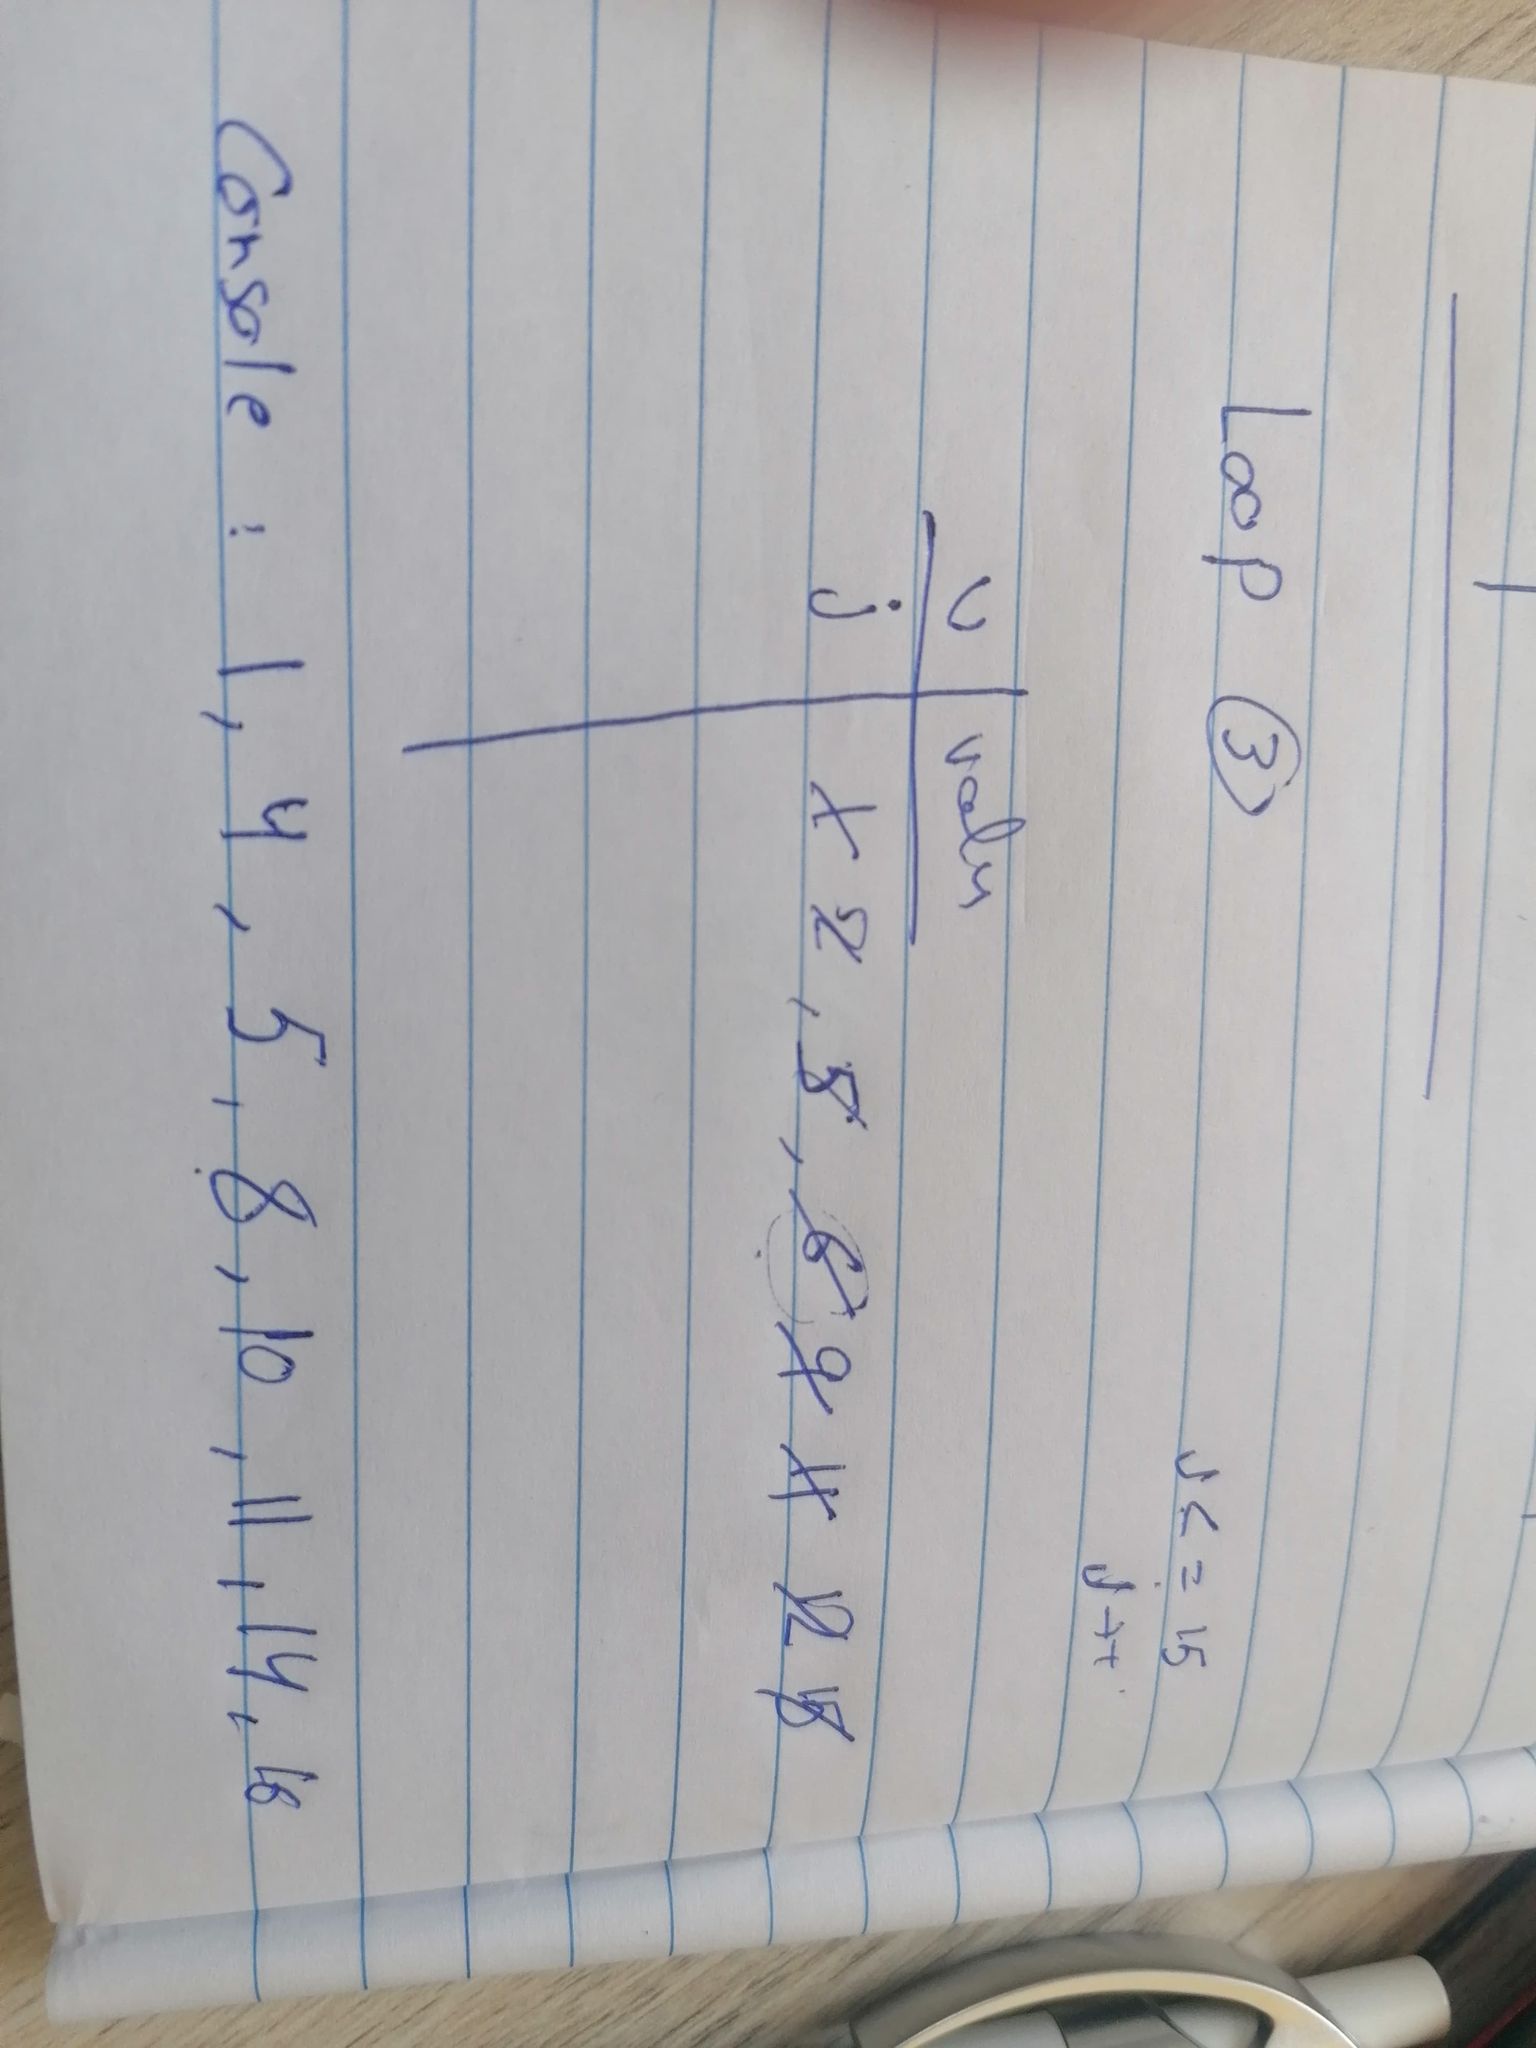 Loop ③
j <= 15
j++
v | valu
j | 1 2, 5, 6 9 11 12 15
Console : 1, 4, 5, 8, 10, 11, 14, 16